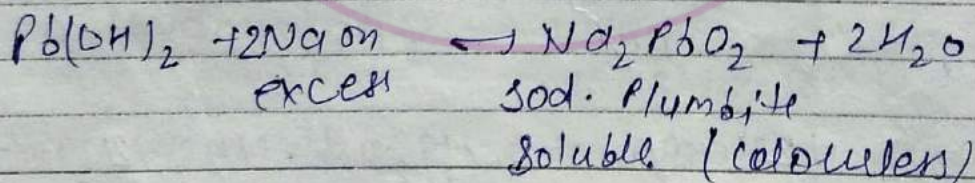 Pb(OH)₂ + 2NaOH ⟶ Na₂PbO₂ + 2H₂O
excess sod. Plumbite
soluble (colourless)